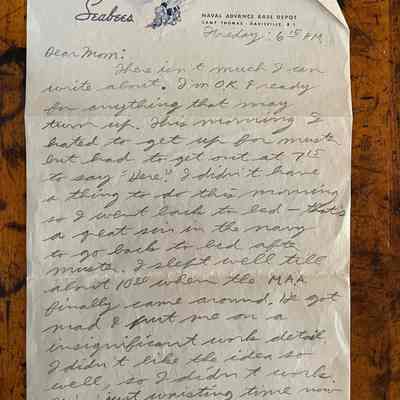 Seabees
NAVAL ADVANCE BASE DEPOT
CAMP THOMAS - DAVISVILLE, R. I.
Tuesday: 6:15 P.M.
Dear Mom:
There isn't much I can
write about. I'm OK & ready
for anything that may
turn up. This morning I
hated to get up for muster
but had to get out at 7:15
to say "Here." I didn't have
a thing to do this morning
so I went back to bed - that's
a great sin in the navy
to go back to bed after
muster. I slept well till
about 10:00 when the MAA
finally came around. He got
mad & put me on a
insignificant work detail.
I didn't like the idea so
well, so I didn't work.
just waisting time now